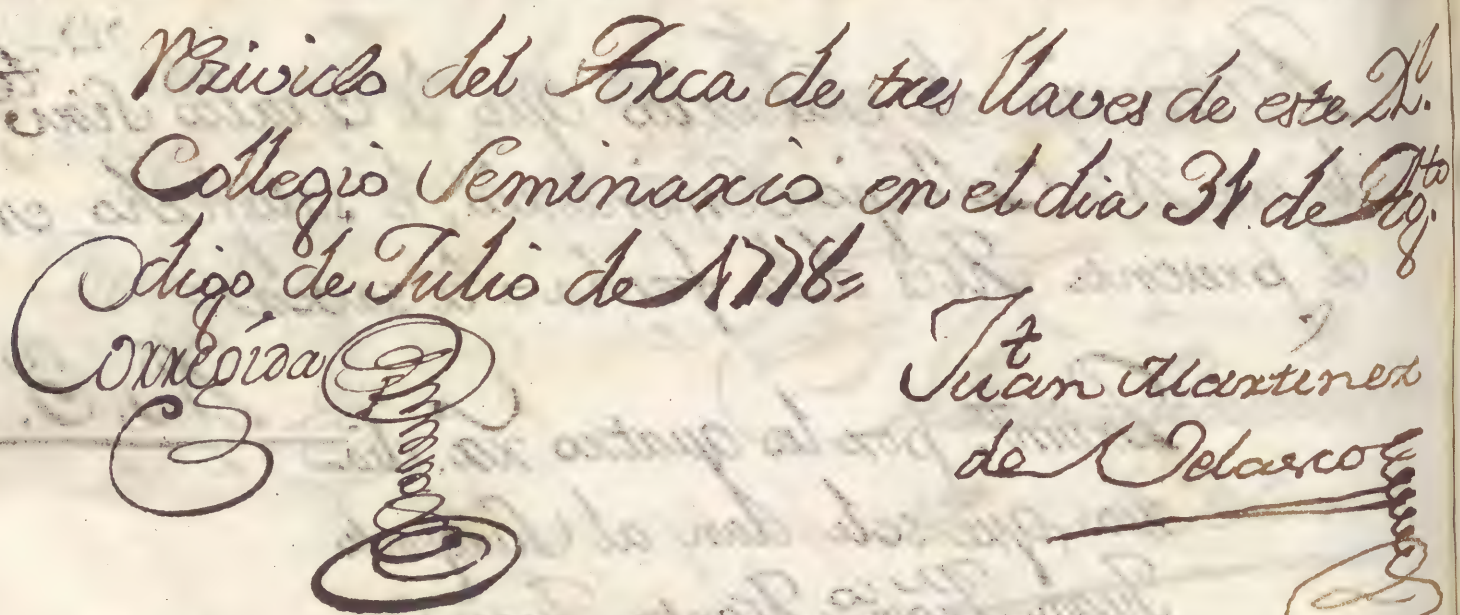 Rezivido del Arca de tres llaves de este Rl.
Collegio Seminario en el dia 31 de Agto
digo de Julio de 1778=
Juan Martinez
de Velasco